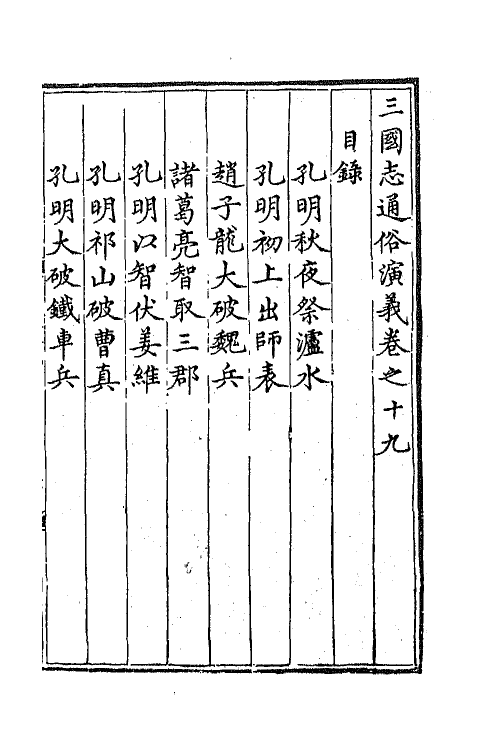 三國志通俗演義卷之十九
目錄
孔明秋夜祭瀘水
孔明初上出師表
趙子龍大破魏兵
諸葛亮智取三郡
孔明以智伏姜維
孔明祁山破曹真
孔明大破鐵車兵